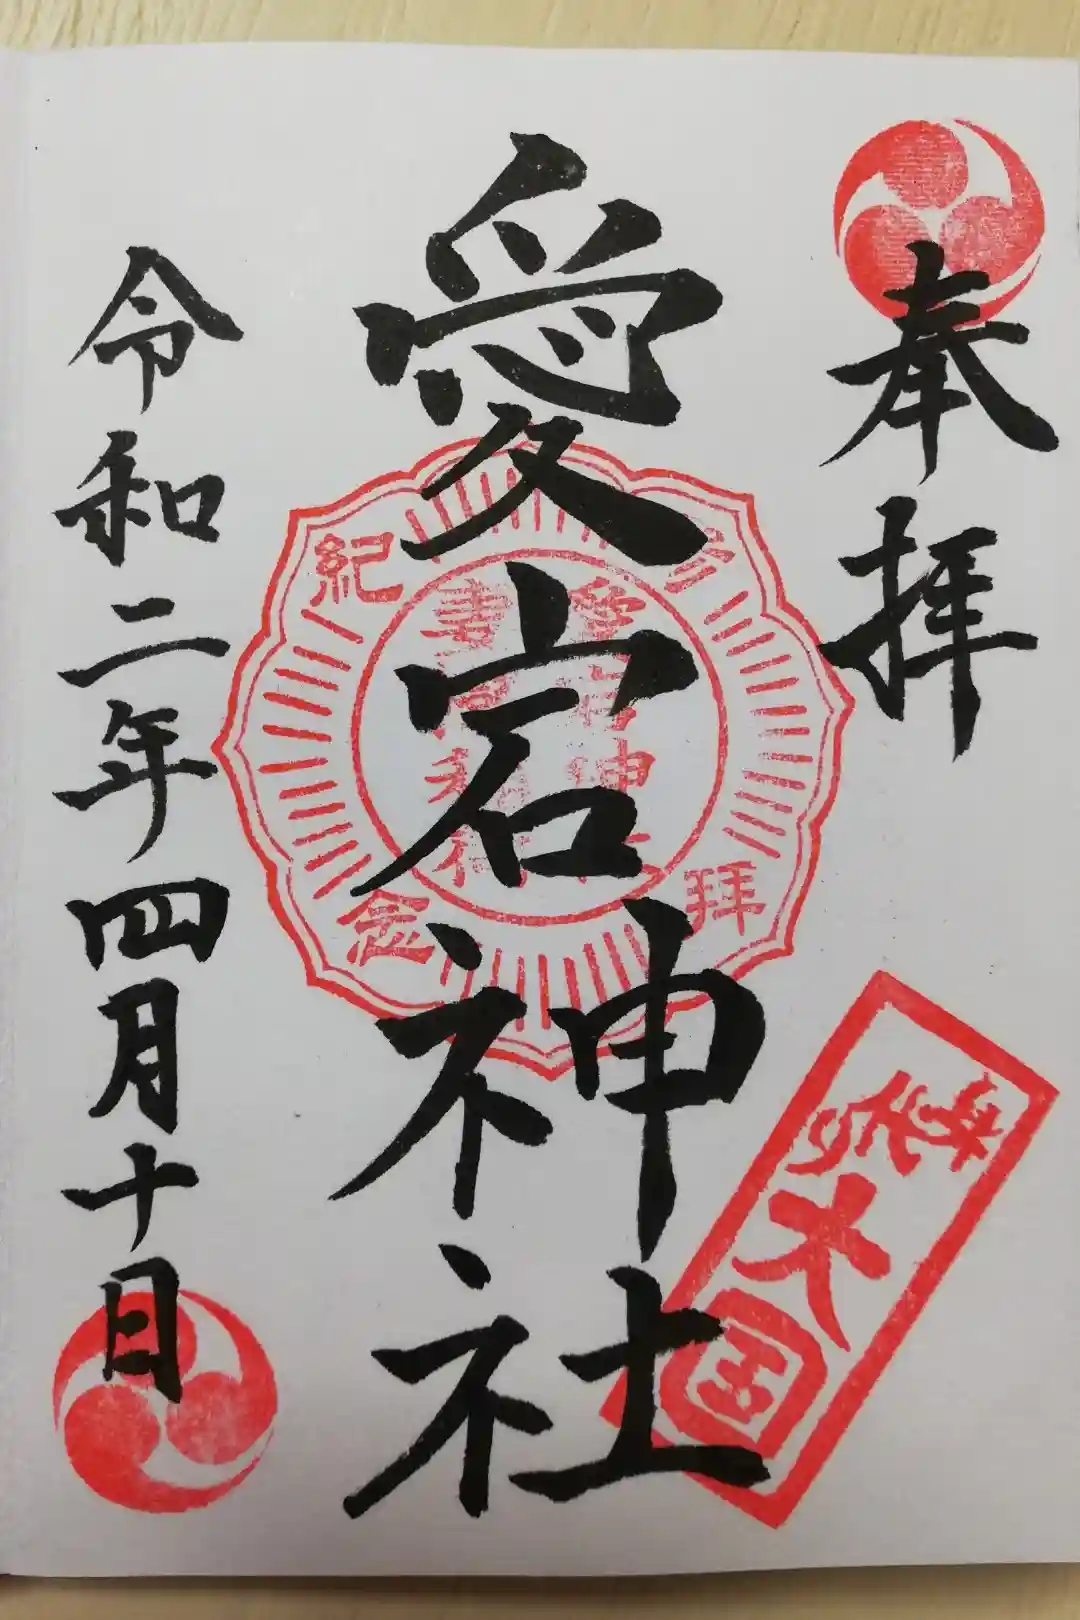 奉拝
愛宕神社
令和二年四月十日
参拝
紀念
愛宕神社
大国